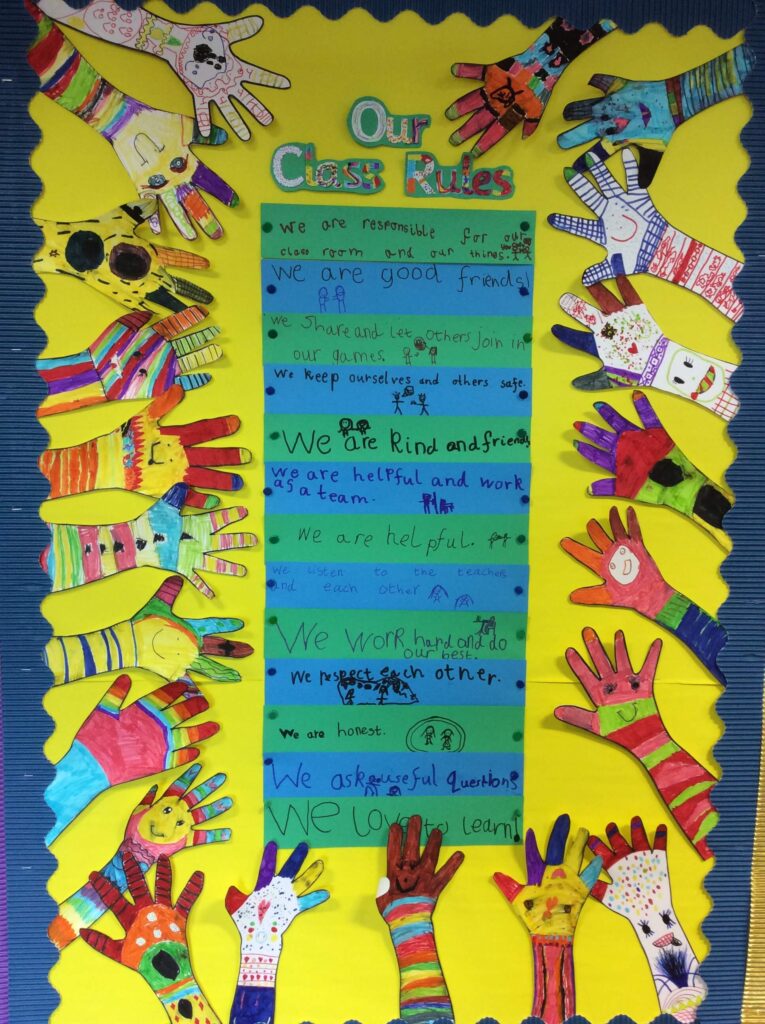 Our
Class Rules
We are responsible for our
class room and our things.
We are good friends!
We share and let others join in
our games
We keep ourselves and others safe.
We are kind and friendly
We are helpful and work
as a team.
We are helpful.
We listen to the teachers
and each other
We work hard and do
our best.
We respect each other.
We are honest.
We ask useful Questions
We Love to learn!